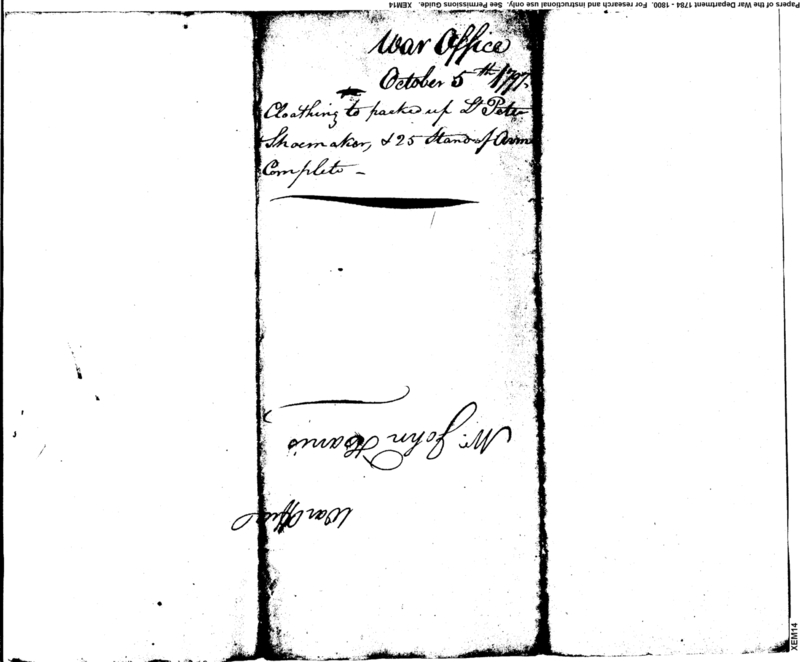 Papers of the War Department 1784 - 1800. For research and instructional use only. See Permissions Guide. XEM14
War Office
October 5th 1797.
Cloathing to packe up Lt Peter
Shoemaker, & 25 Stand of Arms
Complete -
Mr. John Harris
War Office
XEM14